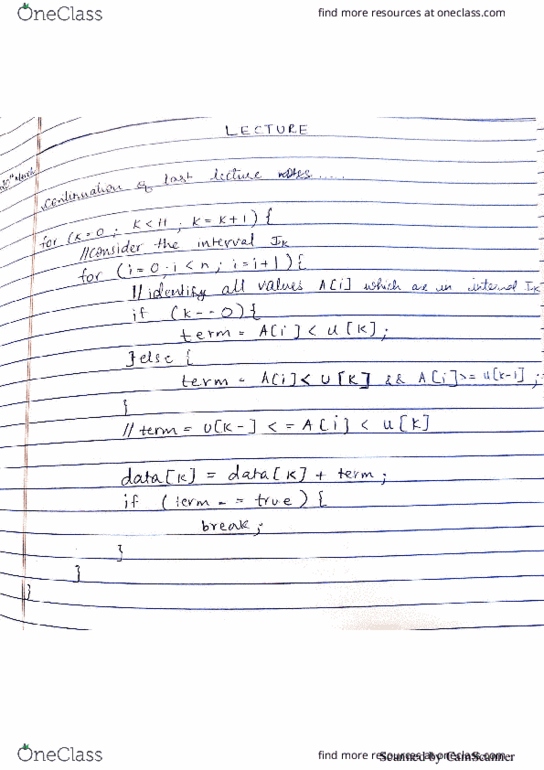 OneClass
find more resources at oneclass.com
LECTURE
continuation of last lecture notes.....
for (K=0 ; K<11 ; K=K+1) {
//consider the interval IK
for (i=0;i<n;i=i+1){
//identify all values A[i] which are in interval IK
if (k--0){
term = A[i] < U[K];
}else {
term = A[i]< U[K] && A[i]>= U[k-1] ;
}
//term = U[K-] <= A[i] < U[K]
data[K] = data[K] + term;
if (term == true) {
break;
}
}
}
OneClass
find more resources at oneclass.com
Scanned by CamScanner